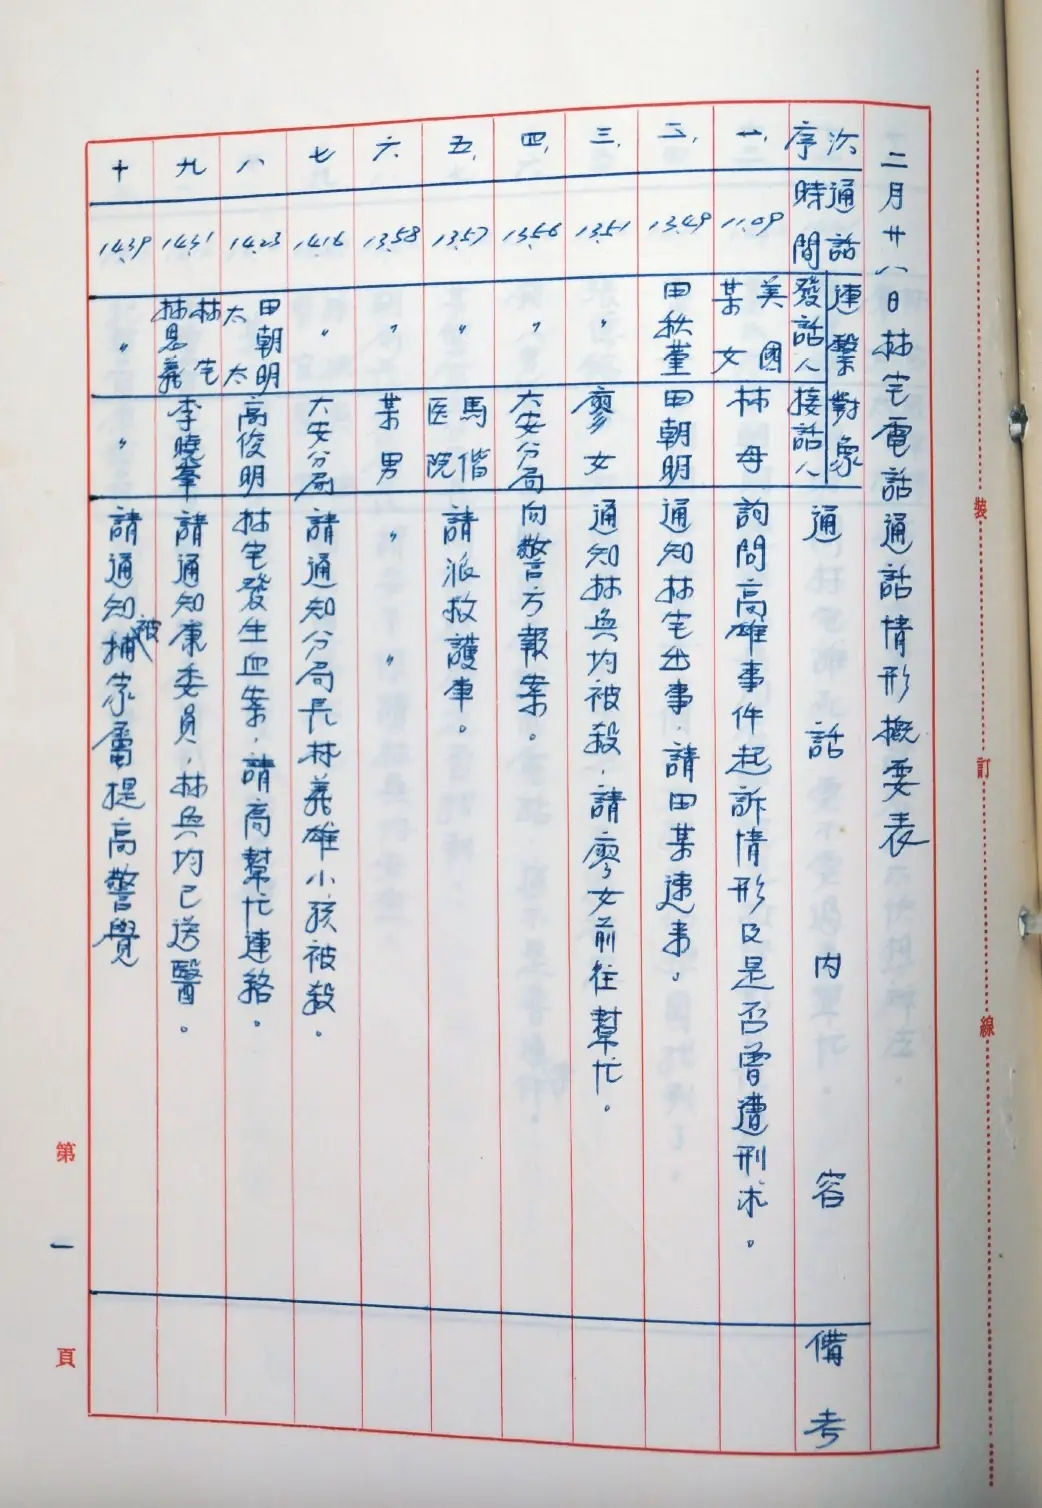 二月廿八日林宅電話通話情形概要表
次序
通話時間
連繫對象
發話人
接話人
通話內容
備考
一、
11.09
美國某女
林母
詢問高雄事件起訴情形及是否曾遭刑求。
二、
13.49
田秋堇
田朝明
通知林宅出事,請田某速來。
三、
13.51
〃
廖女
通知林奐均被殺,請廖女前往幫忙。
四、
13.56
〃
大安分局
向警方報案。
五、
13.57
〃
馬偕医院
請派救護車。
六、
13.58
〃
某男
〃 〃
七
14.16
〃
大安分局
請通知分局長林義雄小孩被殺。
八
14.23
田朝明太太
高俊明
林宅發生血案,請高幫忙連絡。
九
14.31
林宅林恩義
李曉峯
請通知康委員,林奐均已送醫。
十
14.39
〃
〃
請通知被捕家屬提高警覺
第一頁
裝訂線